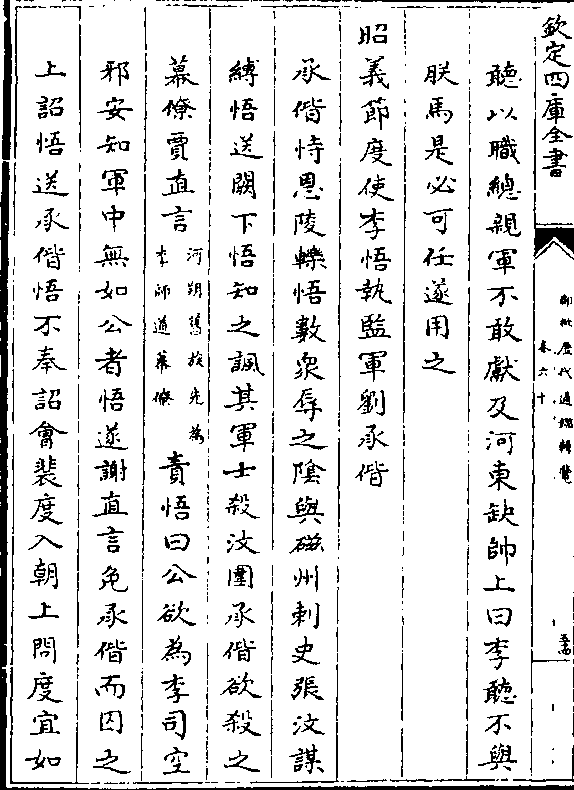 欽定四庫全書
御批歷代通鑑輯覽
卷六十
聽以職總親軍不敢獻及河東缺帥上曰李聽不與
朕馬是必可任遂用之
昭義節度使李悟執監軍劉承偕
承偕恃恩陵轢悟數衆辱之陰與磁州刺史張汶謀
縛悟送闕下悟知之諷其軍士殺汶圍承偕欲殺之
幕僚賈直言
河朔舊族先為
李師道幕僚
責悟曰公欲為李司空
邪安知軍中無如公者悟遂謝直言免承偕而囚之
上詔悟送承偕悟不奉詔會裴度入朝上問度宜如